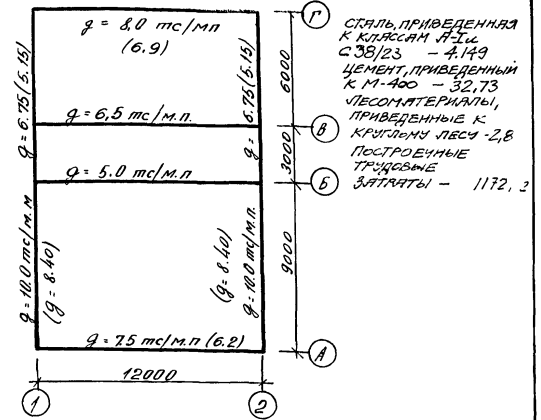 g = 8,0 тс/мп
(6.9)
g = 6.75 (5.15)
g = 6.75 (5.15)
g = 6,5 тс/м.п.
g = 5.0 тс/м.п
g = 10.0 тс/м.м
(g = 8.40)
(g = 8.40)
g = 10.0 тс/м.п.
g = 75 тс/м.п (6.2)
12000
1
2
6000
3000
9000
Г
В
Б
А
СТАЛЬ, ПРИВЕДЕННАЯ
К КЛАССАМ А-I и
С 38/23 - 4.149
ЦЕМЕНТ, ПРИВЕДЕННЫЙ
К М-400 - 32,73
ЛЕСОМАТЕРИАЛЫ,
ПРИВЕДЕННЫЕ К
КРУГЛОМУ ЛЕСУ -2,8
ПОСТРОЕЧНЫЕ
ТРУДОВЫЕ
ЗАТРАТЫ - 1172, 2